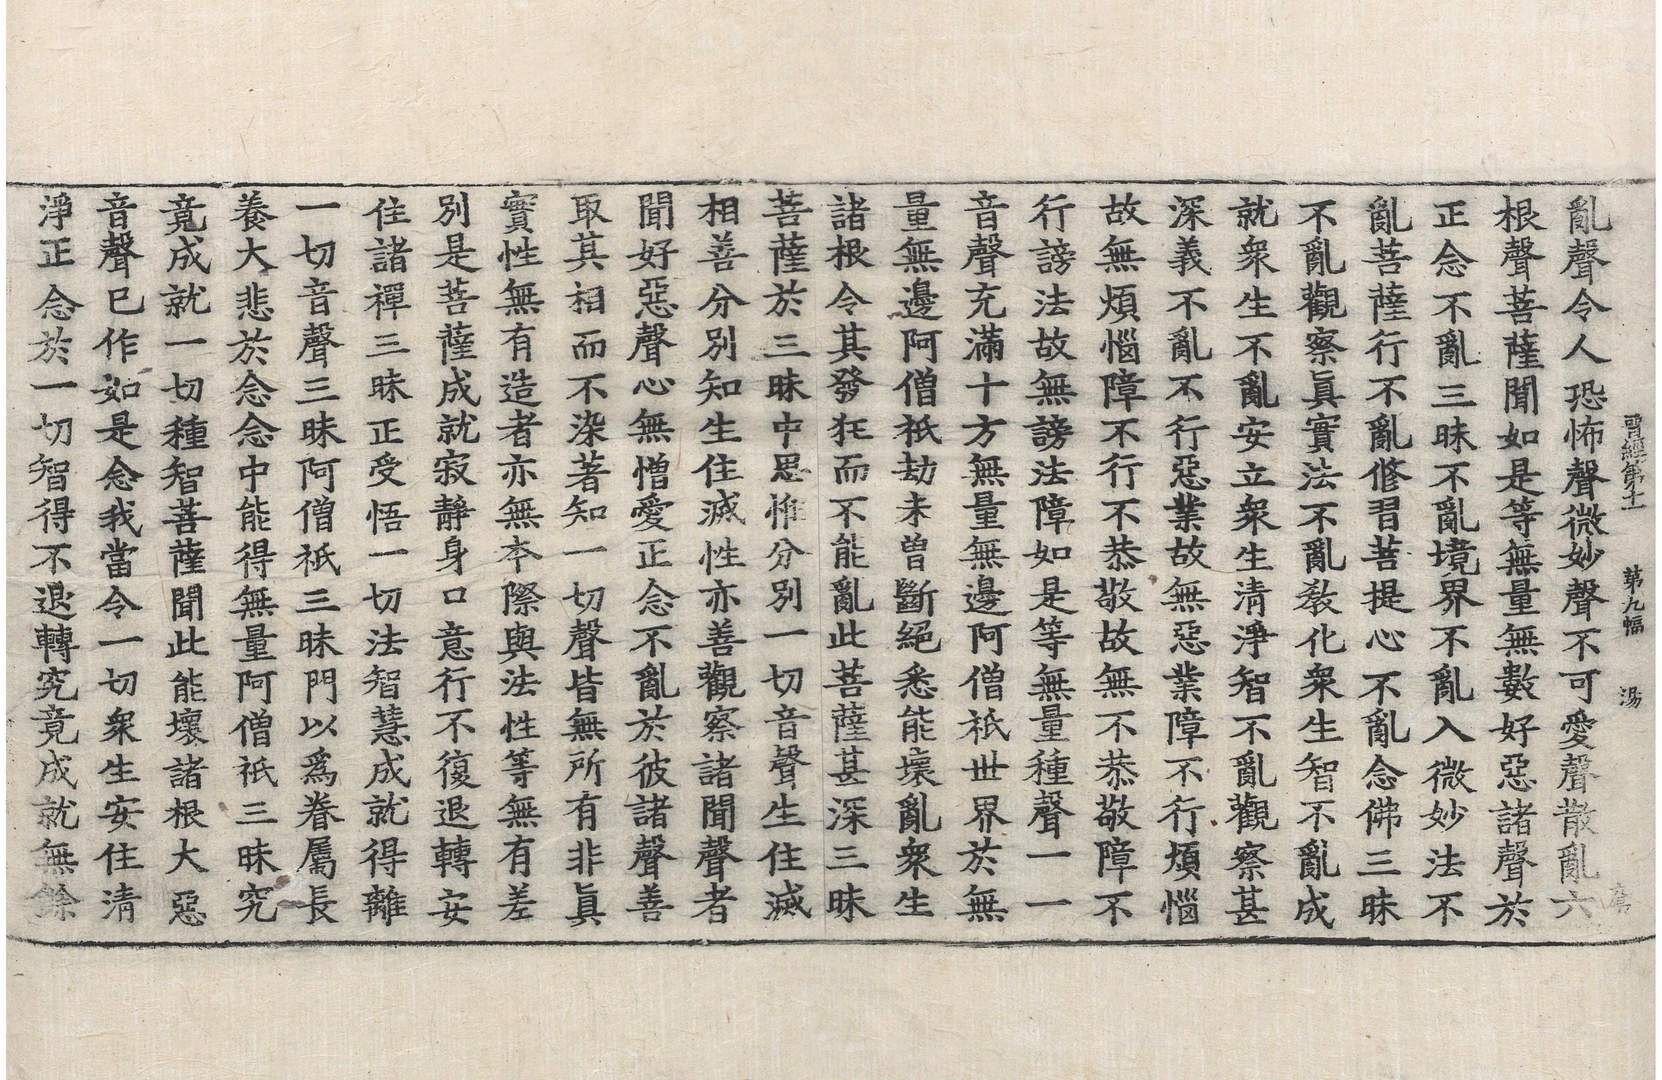 晋經第十一 第九幅 湯
亂聲令人恐怖聲微妙聲不可愛聲散亂六
根聲菩薩聞如是等無量無數好惡諸聲於
正念不亂三昧不亂境界不亂入微妙法不
亂菩薩行不亂修習菩提心不亂念佛三昧
不亂觀察真實法不亂教化衆生智不亂成
就衆生不亂安立衆生清淨智不亂觀察甚
深義不亂不行惡業故無惡業障不行煩惱
故無煩惱障不行不恭敬故無不恭敬障不
行謗法故無謗法障如是等無量種聲一一
音聲充滿十方無量無邊阿僧祇世界於無
量無邊阿僧祇劫未曾斷絕悉能壞亂衆生
諸根令其發狂而不能亂此菩薩甚深三昧
菩薩於三昧中思惟分別一切音聲生住滅
相善分別知生住滅性亦善觀察諸聞聲者
聞好惡聲心無憎愛正念不亂於彼諸聲善
取其相而不染著知一切聲皆無所有非真
實性無有造者亦無本際與法性等無有差
別是菩薩成就寂靜身口意行不復退轉安
住諸禪三昧正受悟一切法智慧成就得離
一切音聲三昧阿僧祇三昧門以爲眷屬長
養大悲於念念中能得無量阿僧祇三昧究
竟成就一切種智菩薩聞此能壞諸根大惡
音聲已作如是念我當令一切衆生安住清
淨正念於一切智得不退轉究竟成就無餘